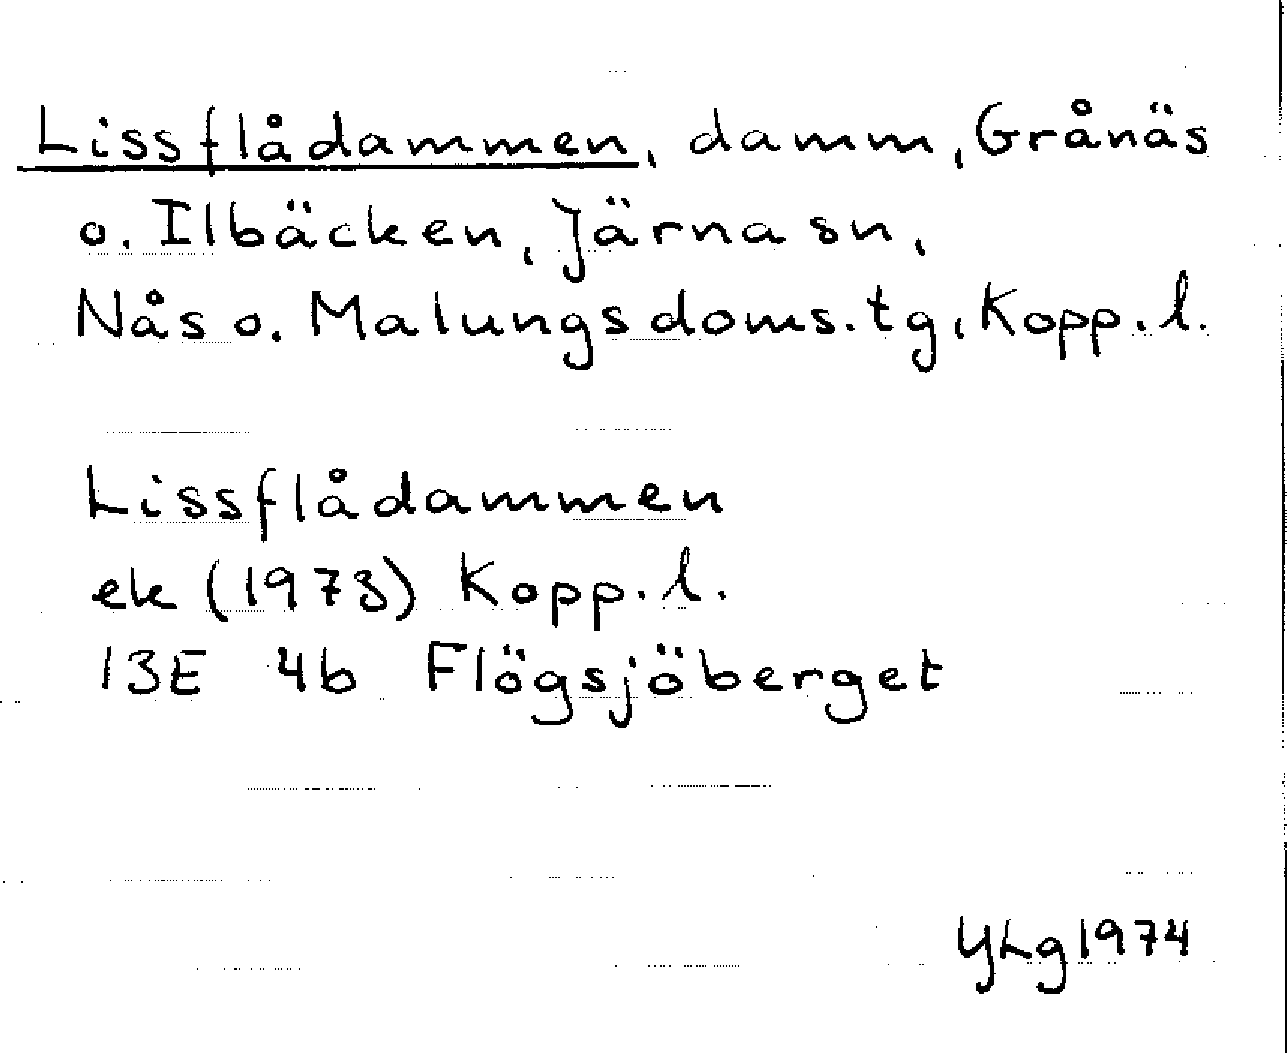 Lissflådammen, damm, Grånäs
o. Ilbäcken, Järna sn,
Nås o. Malungs doms.tg, Kopp. l.
Lissflådammen
ek (1973) Kopp. l.
13E 4b Flögsjöberget
YLg 1974